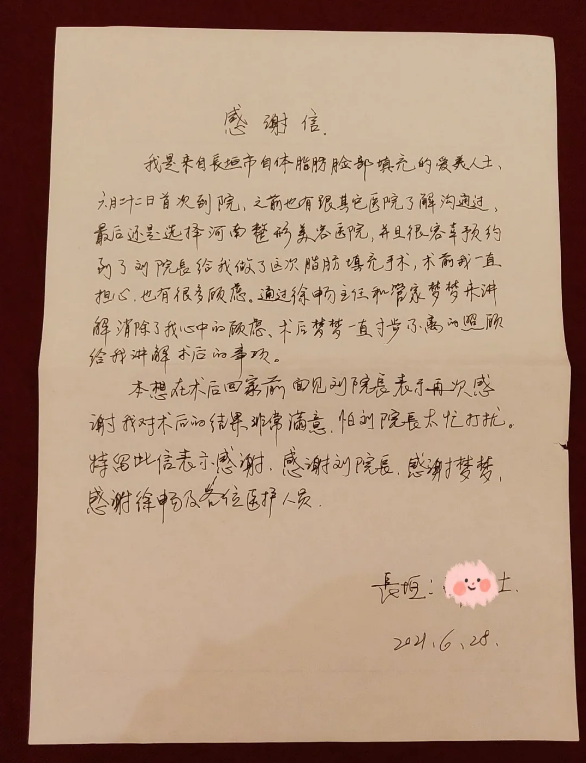 感谢信.
我是来自長垣市自体脂肪脸部填充的爱美人士、
六月二十二日首次到院、之前也有跟其它医院了解沟通过,
最后还是选择河南整形美容医院,并且很容幸预约
到了刘院長给我做了这次脂肪填充手术,术前我一直
担心,也有很多顾虑。通过徐畅主任和管家梦梦来讲
解消除了我心中的顾虑、术后梦梦一直寸步不离的照顾
给我讲解术后的事项。
本想在术后回家前面见刘院長表示再次感
谢我对术后的结果非常满意,怕刘院長太忙打扰。
特留此信表示感谢,感谢刘院長,感谢梦梦,
感谢徐畅及各位医护人员.
長垣: 士.
2021.6.28.